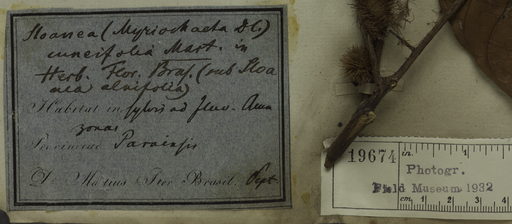 Sloanea (Myriochaeta DC.)
cuneifolia Mart. in
Herb. Flor. Bras. (sub Sloa
nea alnifolia)
Habitat in sylvis ad fluv. Ama
zonas
Provinciae Paraensis
D. Martius Iter Brasil. Sept.
19674
in. 1
Photogr.
Field Museum 1932
cm 1 2 3 4 5